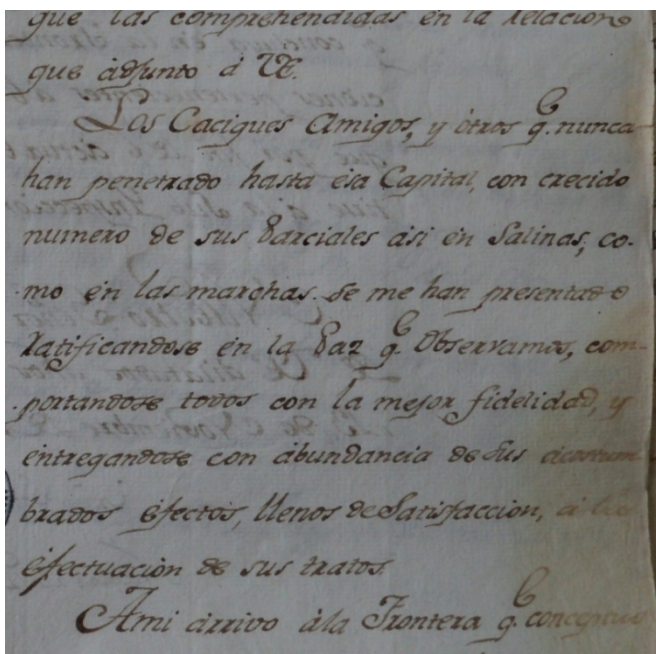 que las comprehendidas en la relacion
que adjunto á VE.
Los Caciques Amigos, y otros q.e nunca
han penetrado hasta esa Capital, con crecido
numero de sus Parciales asi en Salinas, co-
mo en las marchas se me han presentado
ratificandose en la Paz q.e Observamos, com-
portandose todos con la mejor fidelidad, y
entregandose con abundancia de sus acostum
brados efectos, llenos de Satisfaccion, á la
efectuacion de sus tratos.
Ami arrivo ála Frontera q.e conceptuo